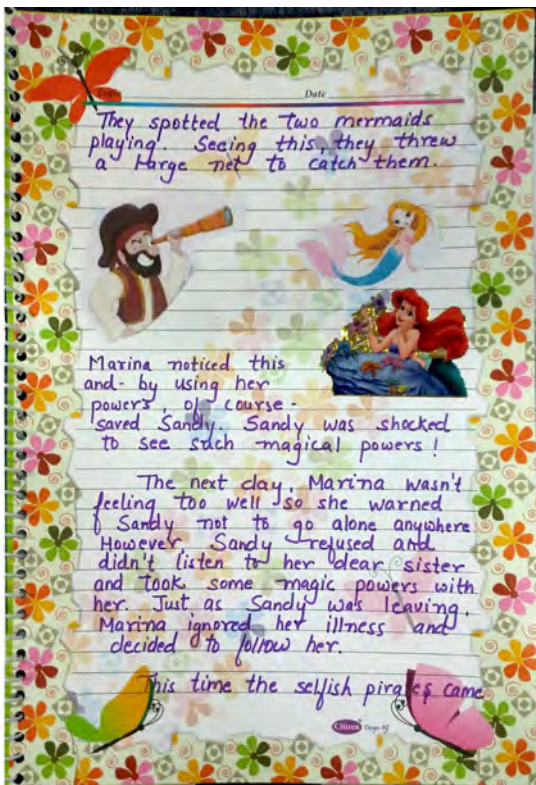 Date
They spotted the two mermaids
playing. Seeing this, they threw
a large net to catch them.
Marina noticed this
and - by using her
powers, of course -
saved Sandy. Sandy was shocked
to see such magical powers !
The next day, Marina wasn't
feeling too well so she warned
Sandy not to go alone anywhere
However Sandy refused and
didn't listen to her dear sister
and took some magic powers with
her. Just as Sandy was leaving,
Marina ignored her illness and
decided to follow her.
This time the selfish pirates came
Citizen